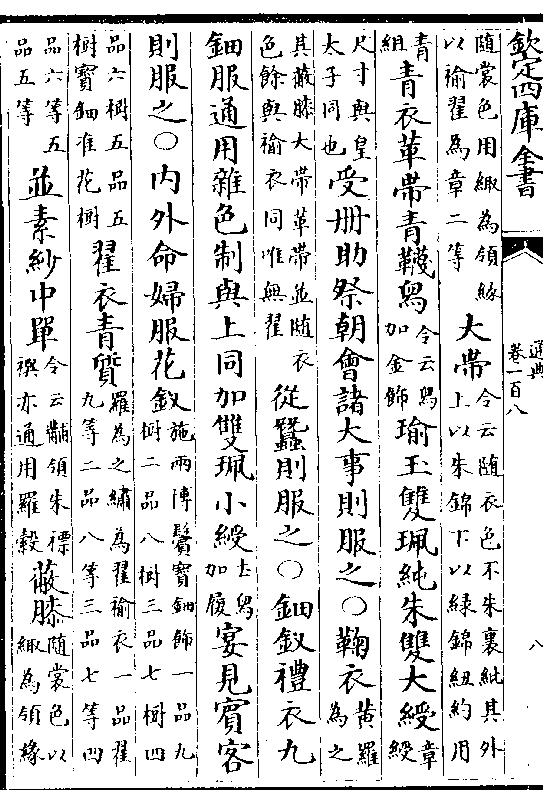 欽定四庫全書 通典 卷一百八 八
隨裳色用緅為領緣以褕翟為章二等大帶今云隨衣色不朱裏紕其外上以朱錦下以緑錦紐約用
青組青衣革帶青韈舄今云舄加金飾瑜玉雙珮純朱雙大綬章綬
尺寸與皇太子同也受册助祭朝會諸大事則服之〇鞠衣黄羅為之
其蔽膝大帶革帶並隨衣色餘與褕衣同唯無翟從蠶則服之〇鈿釵禮衣九
鈿服通用雜色制與上同加雙珮小綬去舄加履宴見賓客
則服之〇内外命婦服花釵施兩博鬢寳鈿飾一品九樹二品八樹三品七樹四
品六樹五品五樹寳鈿准花樹翟衣青質羅為之繡為翟褕衣一品翟九等二品八等三品七等四
品六等五品五等並素紗中單今云黼領朱褾襈亦通用羅縠蔽膝隨裳色以緅為領緣